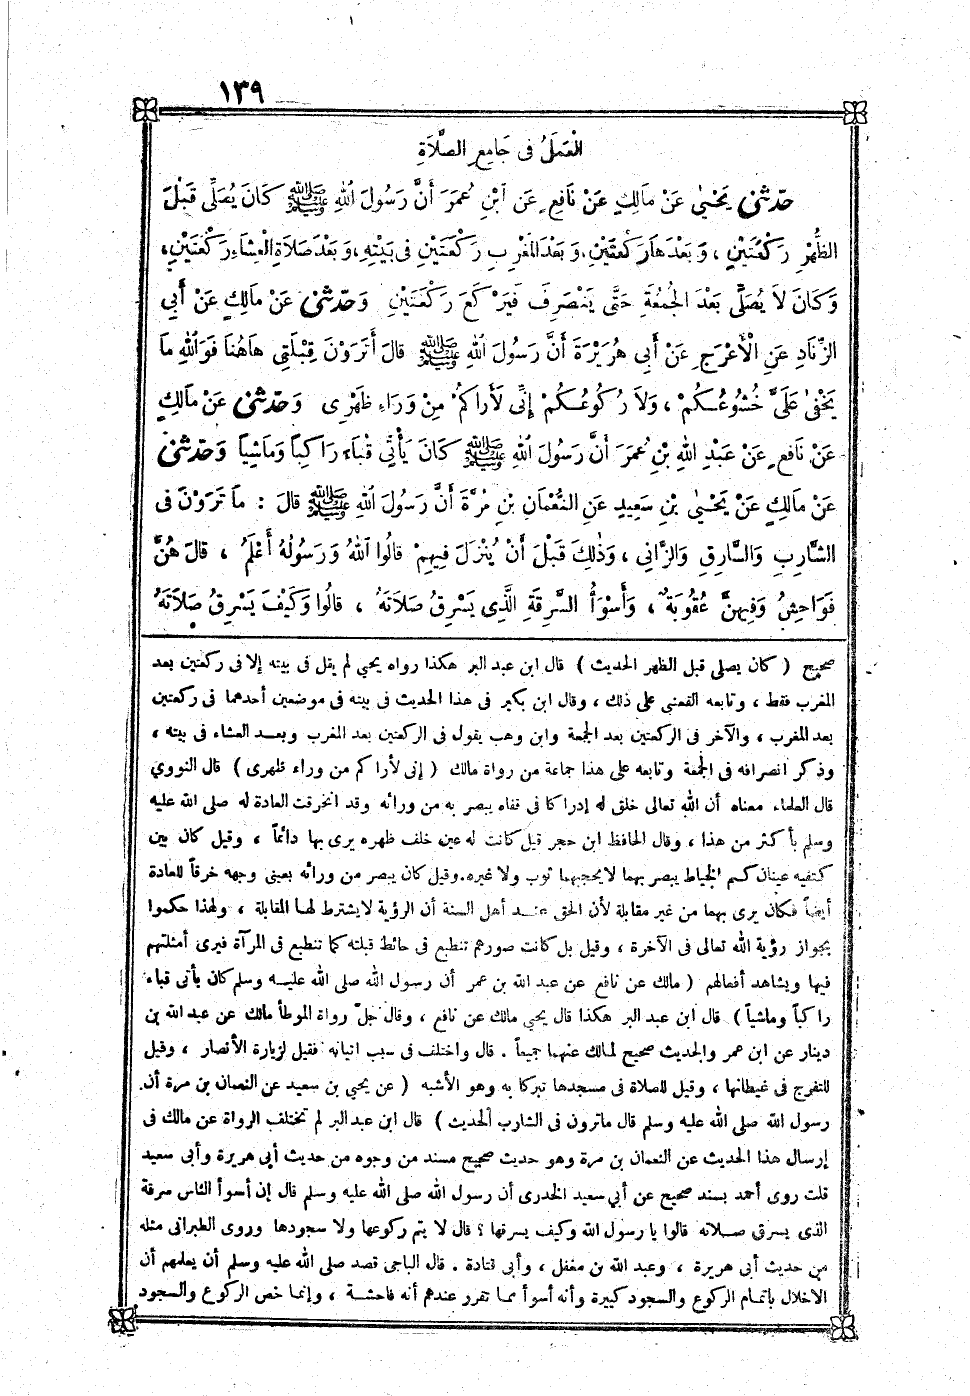 ١٣٩
الْعَمَلُ فى جَامِعِ الصَّلَاةِ
حَدّثنى يَحْيَى عَنْ مَالِكٍ عَنْ نَافِعٍ عَنِ ابْنِ عُمَرَ أَنَّ رَسُولَ اللهِ ﷺ كَانَ يُصَلِّى قَبْلَ
الظُّهْرِ رَكْعَتَيْنِ ، وَبَعْدَهَا رَكْعَتَيْنِ، وَبَعْدَ الْمَغْرِبِ رَكْعَتَيْنِ فى بَيْتِهِ، وَبَعْدَ صَلَاةِ الْعِشَاءِ رَكْعَتَيْنِ،
وَكَانَ لَا يُصَلِّى بَعْدَ الْجُمُعَةِ حَتَّى يَنْصَرِفَ فَيَرْكَعَ رَكْعَتَيْنِ وَحَدّثنى عَنْ مَالِكٍ عَنْ أَبِي
الزِّنَادِ عَنِ الْأَعْرَجِ عَنْ أَبِى هُرَيْرَةَ أَنَّ رَسُولَ اللهِ ﷺ قالَ أَتَرَوْنَ قِبْلَتِى هاهُنَا فَوَاللهِ مَا
يَخْفَى عَلَىَّ خُشُوعُكُمْ ، وَلَا رُكُوعُكُمْ إِنِّى لَأَرَاكُمْ مِنْ وَرَاءِ ظَهْرِى وَحَدّثنى عَنْ مَالِكٍ
عَنْ نَافِعٍ عَنْ عَبْدِ اللهِ بْنِ عُمَرَ أَنَّ رَسُولَ اللهِ ﷺ كَانَ يَأْتِى قُبَاءَ رَاكِبًا وَمَاشِيًا وَحَدّثنى
عَنْ مَالِكٍ عَنْ يَحْيَى بْنِ سَعِيدٍ عَنِ النُّعْمَانِ بْنِ مُرَّةَ أَنَّ رَسُولَ اللهِ ﷺ قالَ : مَا تَرَوْنَ فى
الشَّارِبِ وَالسَّارِقِ وَالزَّانِي ، وَذٰلِكَ قَبْلَ أَنْ يُنْزَلَ فِيهِمْ قالُوا اللهُ وَرَسُولُهُ أَعْلَمُ ، قالَ هُنَّ
فَوَاحِشُ وَفِيهِنَّ عُقُوبَةٌ ، وَأَسْوَأُ السَّرِقَةِ الَّذِى يَسْرِقُ صَلَاتَهُ ، قالُوا وَكَيْفَ يَسْرِقُ صَلَاتَهُ
صحيح ( كان يصلى قبل الظهر الحديث ) قال ابن عبد البر هكذا رواه يحيى لم يقل فى بيته إلا فى ركعتين بعد
المغرب فقط ، وتابعه القعنبى على ذلك ، وقال ابن بكير فى هذا الحديث فى بيته فى موضعين أحدهما فى ركعتين
بعد المغرب ، والآخر فى الركعتين بعد الجمعة وابن وهب يقول فى الركعتين بعد المغرب وبعد العشاء فى بيته ،
وذكر انصرافه فى الجمعة وتابعه على هذا جماعة من رواة مالك ( إنى لأراكم من وراء ظهرى ) قال النووي
قال العلماء معناه أن الله تعالى خلق له إدراكا فى قفاه يبصر به من ورائه وقد انخرقت العادة له صلى الله عليه
وسلم بأكثر من هذا ، وقال الحافظ ابن حجر قيل كانت له عين خلف ظهره يرى بها دائماً ، وقيل كان بين
كتفيه عينان كسم الخياط يبصر بهما لايحجبهما ثوب ولا غيره.وقيل كان يبصر من ورائه بعينى وجهه خرقاً للعادة
أيضاً فكان يرى بهما من غير مقابلة لأن الحق عند أهل السنة أن الرؤية لايشترط لها المقابلة ، ولهذا حكموا
بجواز رؤية الله تعالى فى الآخرة ، وقيل بل كانت صورهم تنطبع فى حائط قبلته كما تنطبع فى المرآة فيرى أمثلتهم
فيها ويشاهد أفعالهم ( مالك عن نافع عن عبد الله بن عمر أن رسول الله صلى الله عليه وسلم كان يأتى قباء
راكباً وماشياً ) قال ابن عبد البر هكذا قال يحيى مالك عن نافع ، وقال جلّ رواة الموطأ مالك عن عبد الله بن
دينار عن ابن عمر والحديث صحيح لمالك عنهما جميعاً . قال واختلف فى سبب اتيانه فقيل لزيارة الأنصار ، وقيل
للتفرج فى غيطانها ، وقيل للصلاة فى مسجدها تبركا به وهو الأشبه ( عن يحيى بن سعيد عن النعمان بن مرة أن
رسول الله صلى الله عليه وسلم قال ماترون فى الشارب الحديث ) قال ابن عبد البر لم تختلف الرواة عن مالك فى
إرسال هذا الحديث عن النعمان بن مرة وهو حديث صحيح مسند من وجوه من حديث أبى هريرة وأبى سعيد
قلت روى أحمد بسند صحيح عن أبي سعيد الخدرى أن رسول الله صلى الله عليه وسلم قال إن أسوأ الناس سرقة
الذى يسرق صلاته قالوا يا رسول الله وكيف يسرقها ؟ قال لا يتم ركوعها ولا سجودها وروى الطبرانى مثله
من حديث أبى هريرة ، وعبد الله بن مغفل ، وأبى قتادة . قال الباجى قصد صلى الله عليه وسلم أن يعلمهم أن
الاخلال باتمام الركوع والسجود كبيرة وأنه أسوأ مما تقرر عندهم أنه فاحشة ، وإنما خص الركوع والسجود